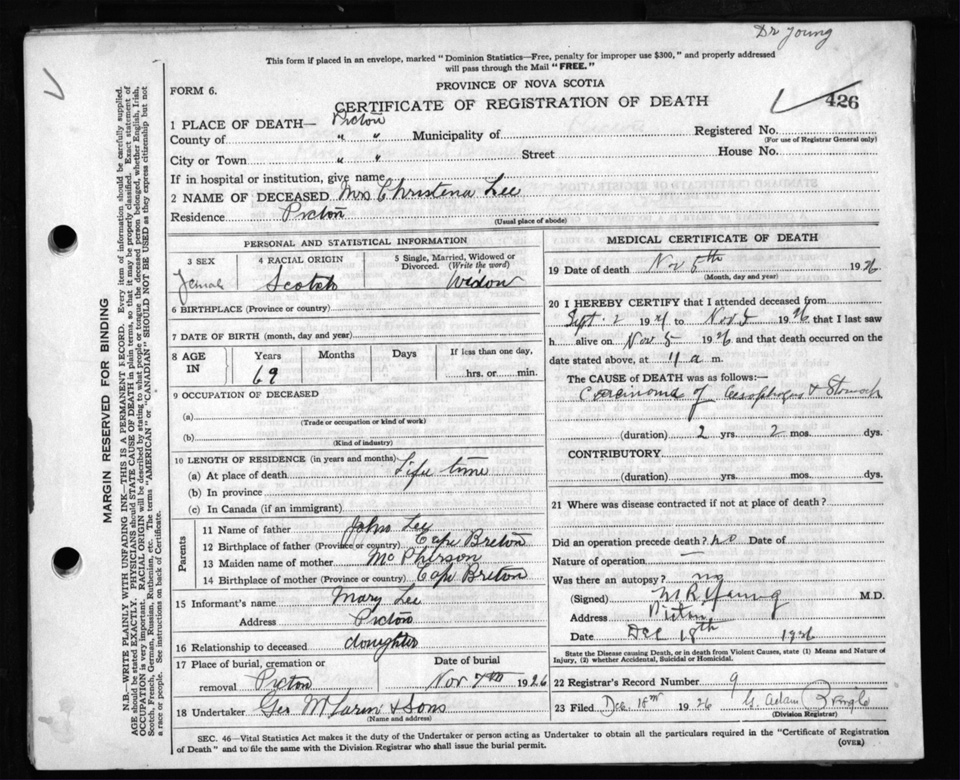 Dr Young
This form if placed in an envelope, marked "Dominion Statistics—Free, penalty for improper use $300," and properly addressed
will pass through the Mail "FREE."
FORM 6.
PROVINCE OF NOVA SCOTIA
CERTIFICATE OF REGISTRATION OF DEATH
426
1 PLACE OF DEATH— Pictou
County of " " Municipality of Registered No.
(For use of Registrar General only)
City or Town " " Street House No.
If in hospital or institution, give name
2 NAME OF DECEASED Mrs Christena Lee
Residence Pictou
(Usual place of abode)
PERSONAL AND STATISTICAL INFORMATION
3 SEX
Female
4 RACIAL ORIGIN
Scotch
5 Single, Married, Widowed or
Divorced. (Write the word)
Widow
6 BIRTHPLACE (Province or country)
7 DATE OF BIRTH (month, day and year)
8 AGE IN
Years Months Days If less than one day,
69 hrs. or min.
9 OCCUPATION OF DECEASED
(a)
(Trade or occupation or kind of work)
(b)
(Kind of industry)
10 LENGTH OF RESIDENCE (in years and months)
(a) At place of death Life time
(b) In province
(c) In Canada (if an immigrant)
Parents
11 Name of father John Lee
12 Birthplace of father (Province or country) Cape Breton
13 Maiden name of mother McPherson
14 Birthplace of mother (Province or country) Cape Breton
15 Informant's name Mary Lee
Address Pictou
16 Relationship to deceased daughter
17 Place of burial, cremation or Date of burial
removal Pictou Nov 7th 1926
18 Undertaker Geo McLaren & Sons
(Name and address)
MEDICAL CERTIFICATE OF DEATH
19 Date of death Nov 5th 1926
(Month, day and year)
20 I HEREBY CERTIFY that I attended deceased from
Sept. 2 19 to Nov 5 1926 that I last saw
h alive on Nov 5 1926 and that death occurred on the
date stated above, at 11 a m.
The CAUSE OF DEATH was as follows:—
Carcinoma of Oesophagus & Stomach
(duration) 2 yrs. 2 mos. dys.
CONTRIBUTORY
(duration) yrs. mos. dys.
21 Where was disease contracted if not at place of death?
Did an operation precede death? no Date of
Nature of operation —
Was there an autopsy? no
(Signed) M R Young M.D.
Address Pictou
Date Dec 18th 1926
State the Disease causing Death, or in death from Violent Causes, state (1) Means and Nature of
Injury, (2) whether Accidental, Suicidal or Homicidal.
22 Registrar's Record Number 9
23 Filed Dec. 18th 1926 G. Adam Pringle
(Division Registrar)
SEC. 46—Vital Statistics Act makes it the duty of the Undertaker or person acting as Undertaker to obtain all the particulars required in the "Certificate of Registration
of Death" and to file the same with the Division Registrar who shall issue the burial permit.
(OVER)
MARGIN RESERVED FOR BINDING
N.B.—WRITE PLAINLY WITH UNFADING INK—THIS IS A PERMANENT RECORD. Every item of information should be carefully supplied.
AGE should be stated EXACTLY. PHYSICIANS should STATE CAUSE OF DEATH in plain terms, so that it may be properly classified. Exact statement of
OCCUPATION is very important. RACIAL ORIGIN will be described by stating to what people or tongue the deceased person belonged, whether English, Irish,
Scotch, French, German, Russian, Ruthenian, etc. The terms "AMERICAN" or "CANADIAN" SHOULD NOT BE USED as they express citizenship but not
a race or people. See instructions on back of Certificate.